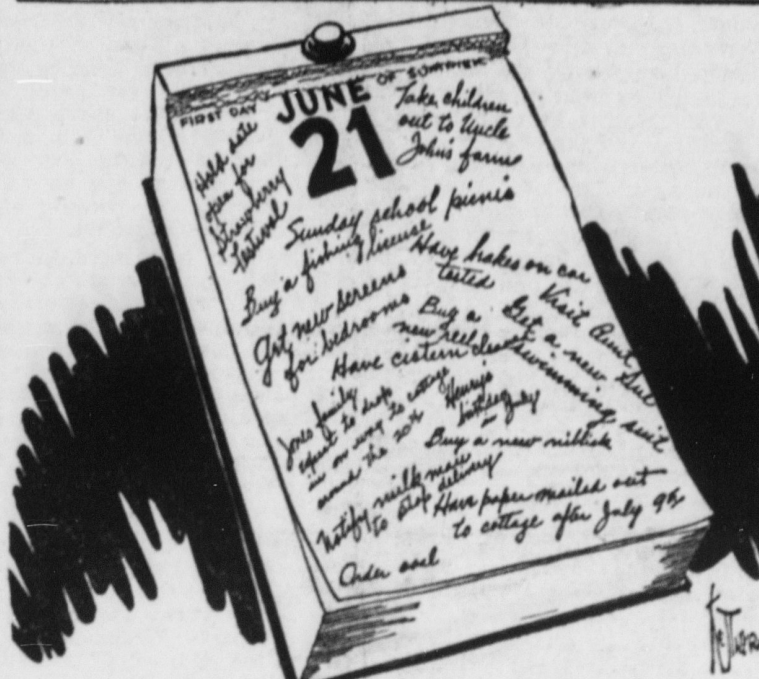 FIRST DAY OF SUMMER
JUNE
21
Hold date
open for
Strawberry
Festival
Take children
out to Uncle
John's farm
Sunday school picnic
Buy a fishing license
Have brakes on car
tested
Get new screens
for bedrooms
Visit Aunt
Buy a
new reel
Get a new
swimming suit
Have cistern cleaned
Jones family
expect to drop
in on way to cottage
around the 20th
Henry's
birthday
in July
Buy a new niblick
Notify milk man
to stop delivery
Have paper mailed out
to cottage after July 9th
Order coal